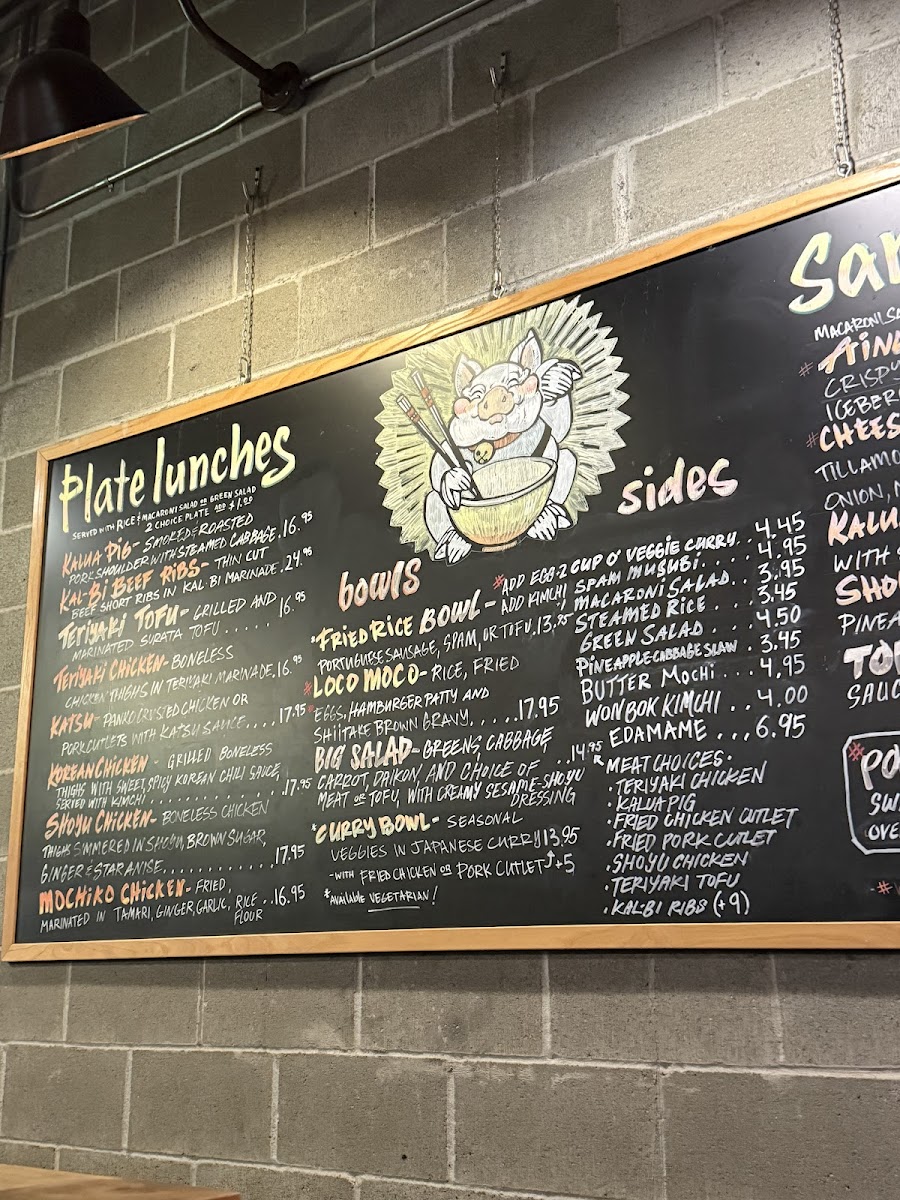 Plate lunches
SERVED WITH RICE & MACARONI SALAD OR GREEN SALAD
2 CHOICE PLATE ADD $1.00
KALUA PIG- SMOKED & ROASTED
PORK SHOULDER WITH STEAMED CABBAGE. 16.95
KAL-BI BEEF RIBS- THIN CUT
BEEF SHORT RIBS IN KAL-BI MARINADE. 24.95
TERIYAKI TOFU- GRILLED AND
MARINATED SURATA TOFU ...... 16.95
TERIYAKI CHICKEN- BONELESS
CHICKEN THIGHS IN TERIYAKI MARINADE. 16.95
KATSU- PANKO CRUSTED CHICKEN OR
PORK CUTLETS WITH KATSU SAUCE.... 17.95
KOREAN CHICKEN - GRILLED BONELESS
THIGHS WITH SWEET, SPICY KOREAN CHILI SAUCE,
SERVED WITH KIMCHI ............... 17.95
SHOYU CHICKEN- BONELESS CHICKEN
THIGHS SIMMERED IN SHOYU, BROWN SUGAR,
GINGER & STAR ANISE............ 17.95
MOCHIKO CHICKEN- FRIED,
MARINATED IN TAMARI, GINGER, GARLIC, RICE FLOUR ..16.95
bowls
*FRIED RICE BOWL- *ADD EGG 2
ADD KIMCHI
PORTUGUESE SAUSAGE, SPAM, OR TOFU. 13.95
*LOCO MOCO- RICE, FRIED
*EGGS, HAMBURGER PATTY AND
SHIITAKE BROWN GRAVY......17.95
BIG SALAD- GREENS, CABBAGE,
CARROT, DAIKON, AND CHOICE OF ..14.95
MEAT OR TOFU, WITH CREAMY SESAME-SHOYU
DRESSING
*CURRY BOWL- SEASONAL
VEGGIES IN JAPANESE CURRY 13.95
-WITH FRIED CHICKEN OR PORK CUTLET +5
*Available VEGETARIAN!
sides
CUP O' VEGGIE CURRY..4.45
SPAM MUSUBI.....4.95
MACARONI SALAD..3.95
STEAMED RICE....3.45
GREEN SALAD ....4.50
PINEAPPLE CABBAGE SLAW.3.45
BUTTER MOCHI....4.95
WON BOK KIMCHI ..4.00
EDAMAME ...6.95
MEAT CHOICES:
·TERIYAKI CHICKEN
·KALUA PIG
·FRIED CHICKEN CUTLET
·FRIED PORK CUTLET
·SHOYU CHICKEN
·TERIYAKI TOFU
·KAL-BI RIBS (+9)
MACARONI
CRISPY
TILLAMO
ONION,
KALUA
WITH
SHO
PINEA
SAUC
OVE